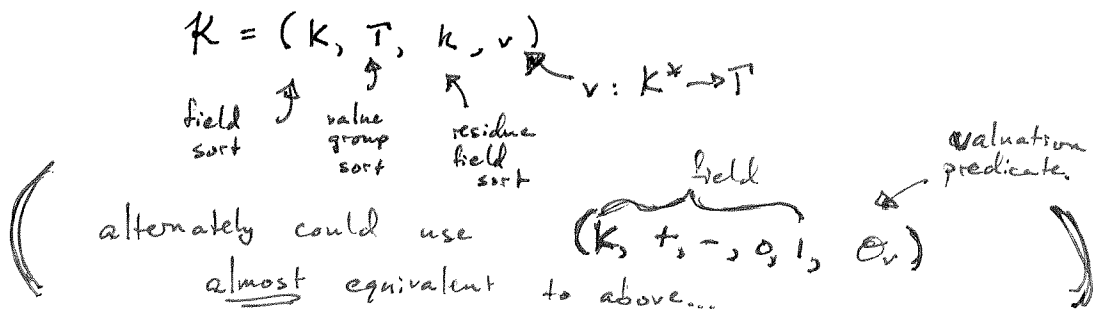 𝒦 = (K, Γ, k, v)
v : K* → Γ
field sort
value group sort
residue field sort
valuation predicate.
field
alternately could use (K, +, -, 0, 1, 𝒪ᵥ)
almost equivalent to above...